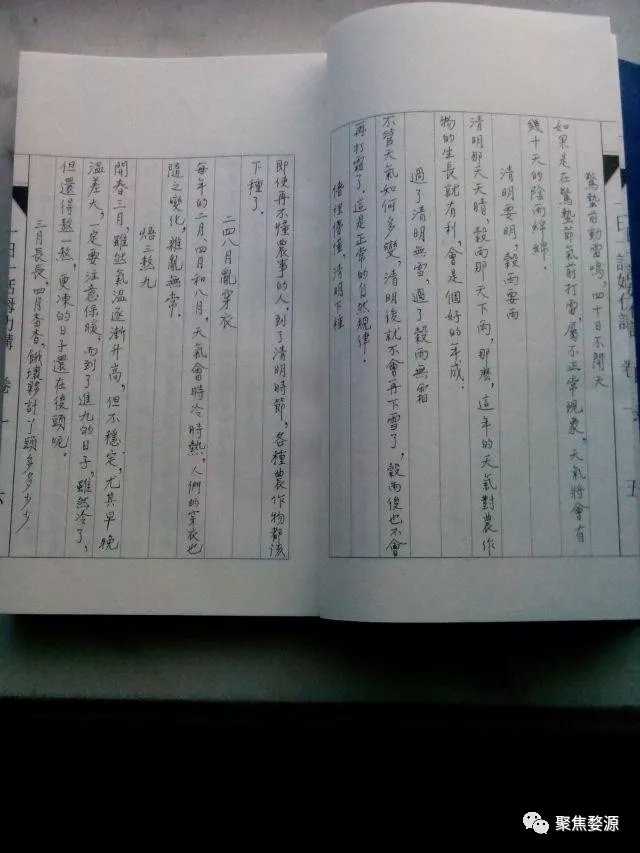 驚蟄前動雷鳴，四十日不開天
如果是在驚蟄節氣前打雷，屬不正常現象，天氣將會有
幾十天的陰雨綿綿。
清明要明，穀雨要雨
清明那天天晴，穀雨那天下雨，那麼，這年的天氣對農作
物的生長就有利，會是個好的年成。
過了清明無雪，過了穀雨無霜
不管天氣如何多變，清明後就不會再下雪了，穀雨後也不會
再打霜了。這是正常的自然規律！
懵裡懵懂，清明下種
五
即使再不懂農事的人，到了清明時節，各種農作物都該
下種了。
二四八月亂穿衣
每年的二月四月和八月，天氣會時冷時熱，人們的穿衣也
隨之變化，雜亂無常。
焐三熬九
開春三月，雖然氣溫逐漸升高，但不穩定，尤其早晚
溫差大，一定要注意保暖。而到了進九的日子，雖然冷了，
但還得熬一熬，更凍的日子還在後頭呢。
三月長長，四月杳杳，餓壞夥計丫頭多多少少
六
聚焦婺源